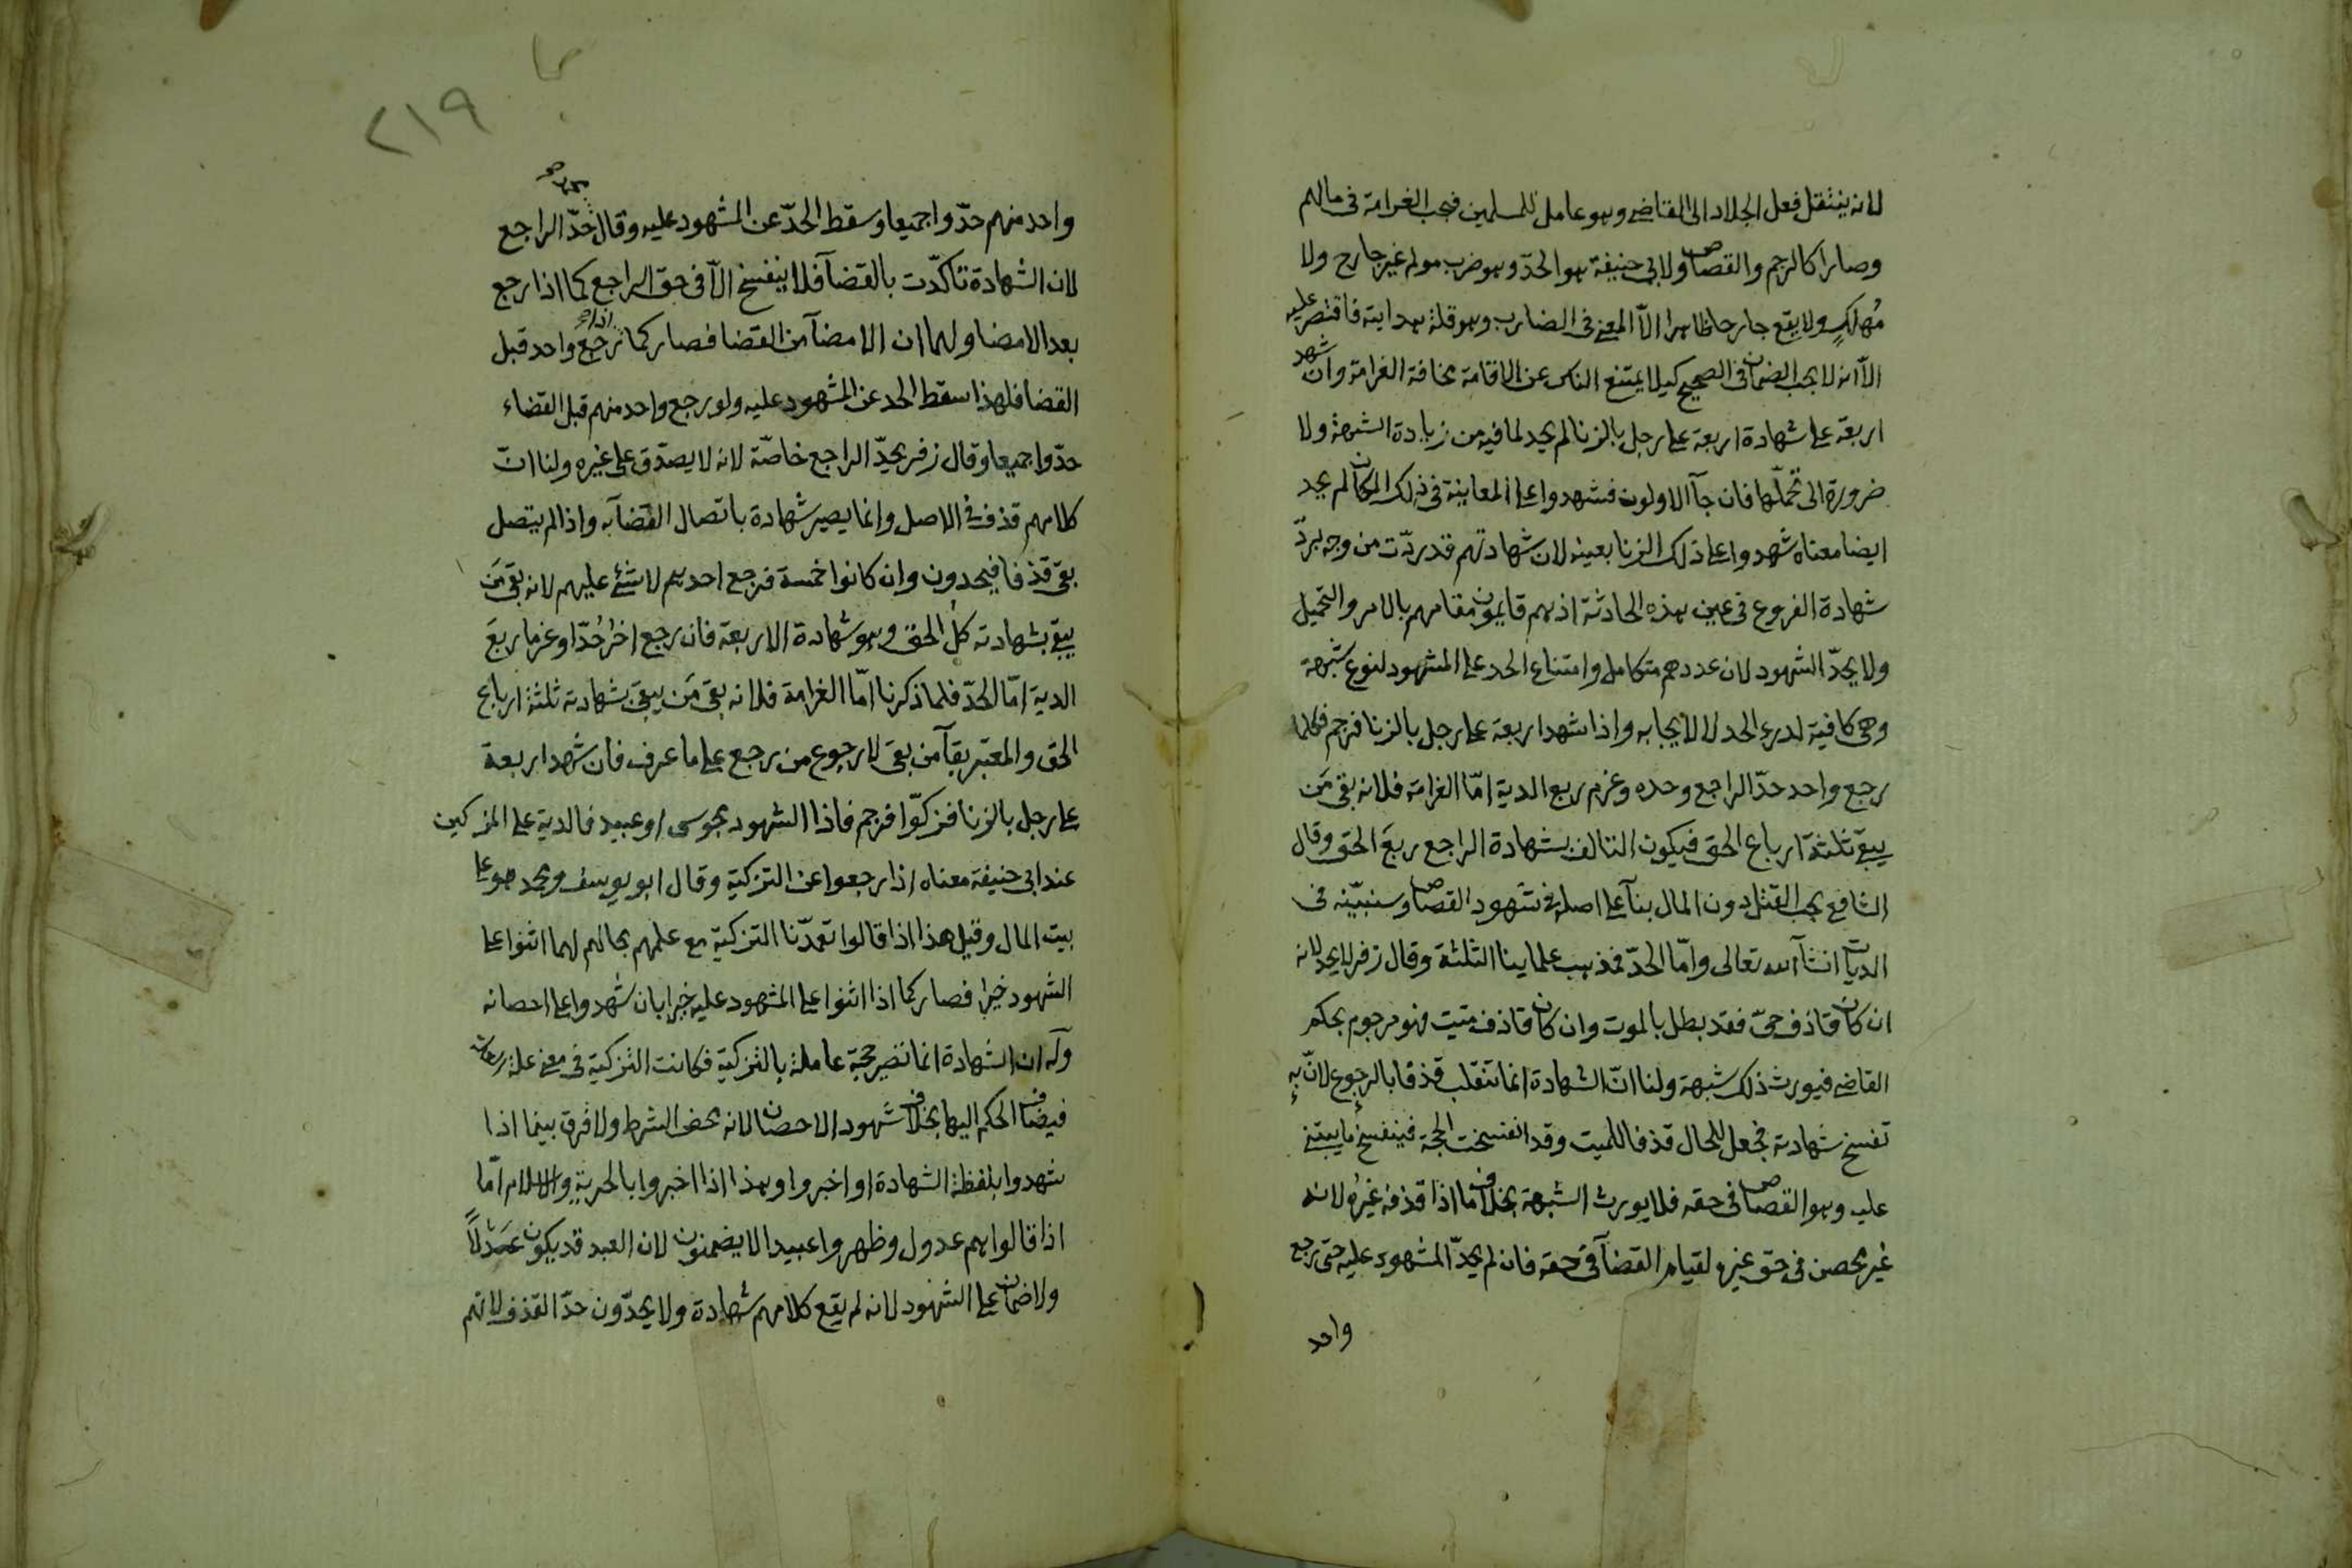 لانه ينتقل فعل الجلاد الى القاضى وهو عامل للمسلمين فيجب الغرامة فى مالهم
وصارا كالرجم والقصاص ولابى حنيفة هو الحدّ وهو ضرب مولم غير جارح ولا
مُهلكٍ ولا يقع جارحا ظاهرا الاّ لمعنى فى الضارب وهو قلة هدايته فاقتصر عليه
الاّ انه لا يجب الضمان فى الصحيح كيلا يمتنع الناس عن الاقامة مخافة الغرامة وان شهد
اربعة على شهادة اربعة على رجل بالزنا لم يحد لما فيه من زيادة الشبهة ولا
ضرورة الى تحمّلها فان جآ الاولون فشهدوا على المعاينة فى ذلك المكان لم يحد
ايضا معناه شهدوا على ذلك الزنا بعينه لان شهادتهم قد ردّت من وجه بردّ
شهادة الفروع فى عين هذه الحادثة اذ هم قايمون مقامهم بالامر والتحميل
ولا يحدّ الشهود لان عددهم متكامل وامتناع الحد على المشهود لنوع شبهة
وهى كافية لدرء الحد لا لايجابه واذا شهد اربعة على رجل بالزنا فرجم فكلما
رجع واحد حدّ الراجع وحده وغرم ربع الدية امّا الغرامة فلانه بقى مَن
يبقى ثلثة ارباع الحق فيكون التالف بشهادة الراجع ربعَ الحق وقال
الشافعى يجب القتل دون المال بنآ على اصله فى شهود القصاص وسنبيّنه فى
الديات انشآ الله تعالى وامّا الحدّ فمذهب علماينا الثلثة وقال زفر لا يحد لانه
ان كان قاذف حىّ فقد بطل بالموت وان كان قاذف ميت فهو مرجوم بحكم
القاضى فيورث ذلك شبهة ولنا انّ الشهادة انما تنقلب قذفا بالرجوع لانّ به
تفسخ شهادته فجعل للحال قذفا للميت وقد انفسخت الحجة فينفسخ ما يبتنى
عليه وهو القصاص فى حقه فلا يورث الشبهة بخلاف ما اذا قذفه غيرُه لانه
غير محصن فى حق غيره لقيام القضآ فى حقه فان لم يحدّ المشهود عليه حتى رجع
واحد
٢١٩
واحد منهم حدّوا جميعا وسقط الحدّ عن المشهود عليه وقال محمد حدّ الراجع
لان الشهادة تاكدّت بالقضآ فلا ينفسخ الاّ فى حق الراجع كما اذا رجع
بعد الامضا ولهما ان الامضآ من القضا فصار كما اذا رجع واحد قبل
القضا فلهذا سقط الحد عن المشهود عليه ولو رجع واحد منهم قبل القضاء
حدّوا جميعا وقال زفر يحدّ الراجع خاصّة لانه لا يصدّق على غيره ولنا انّ
كلامهم قذف فى الاصل وانما يصير شهادة باتصال القضآ به واذا لم يتصل
بقى قذفا فيحدون وان كانوا خمسة فرجع احدهم لا شئ عليهم لانه بقى مَن
يبقى بشهادته كلُ الحق وهو شهادة الاربعة فان رجع اخرُ حُدّا وغرما ربعَ
الدية امّا الحدّ فلما ذكرنا امّا الغرامة فلانه بقى مَن يبقى بشهادته ثلثة ارباع
الحق والمعتبر بقآ من بقى لا رجوع من رجع على ما عرف فان شهد اربعة
على رجل بالزنا فزكّوا فرجم فاذا الشهود مجوسى او عبيد فالدية على المزكين
عند ابى حنيفة معناه اذا رجعوا عن التزكية وقال ابو يوسف ومحمد هو على
بيت المال وقيل هذا اذا قالوا تعمدّنا التزكية مع علمهم بحالهم لهما اثنوا على
الشهود خيرا فصار كما اذا اثنوا على المشهود عليه خيرا بان شهدوا على احصانه
وله ان الشهادة انما تصير حجة عاملة بالتزكية فكانت التزكية فى معنى علة
فيضاف الحكم اليها بخلاف شهود الاحصان لانه محض الشرط ولا فرق بينما اذا
شهدوا بلفظة الشهادة او اخبروا وهذا اذا اخبروا بالحرية والاسلام امّا
اذا قالوا هم عدول وظهروا عبيدا لا يضمنون لان العبد قد يكون عَدْلاً
ولا ضمان على الشهود لانه لم يقع كلامهم شهادة ولا يحدّون حدّ القذف لانهم